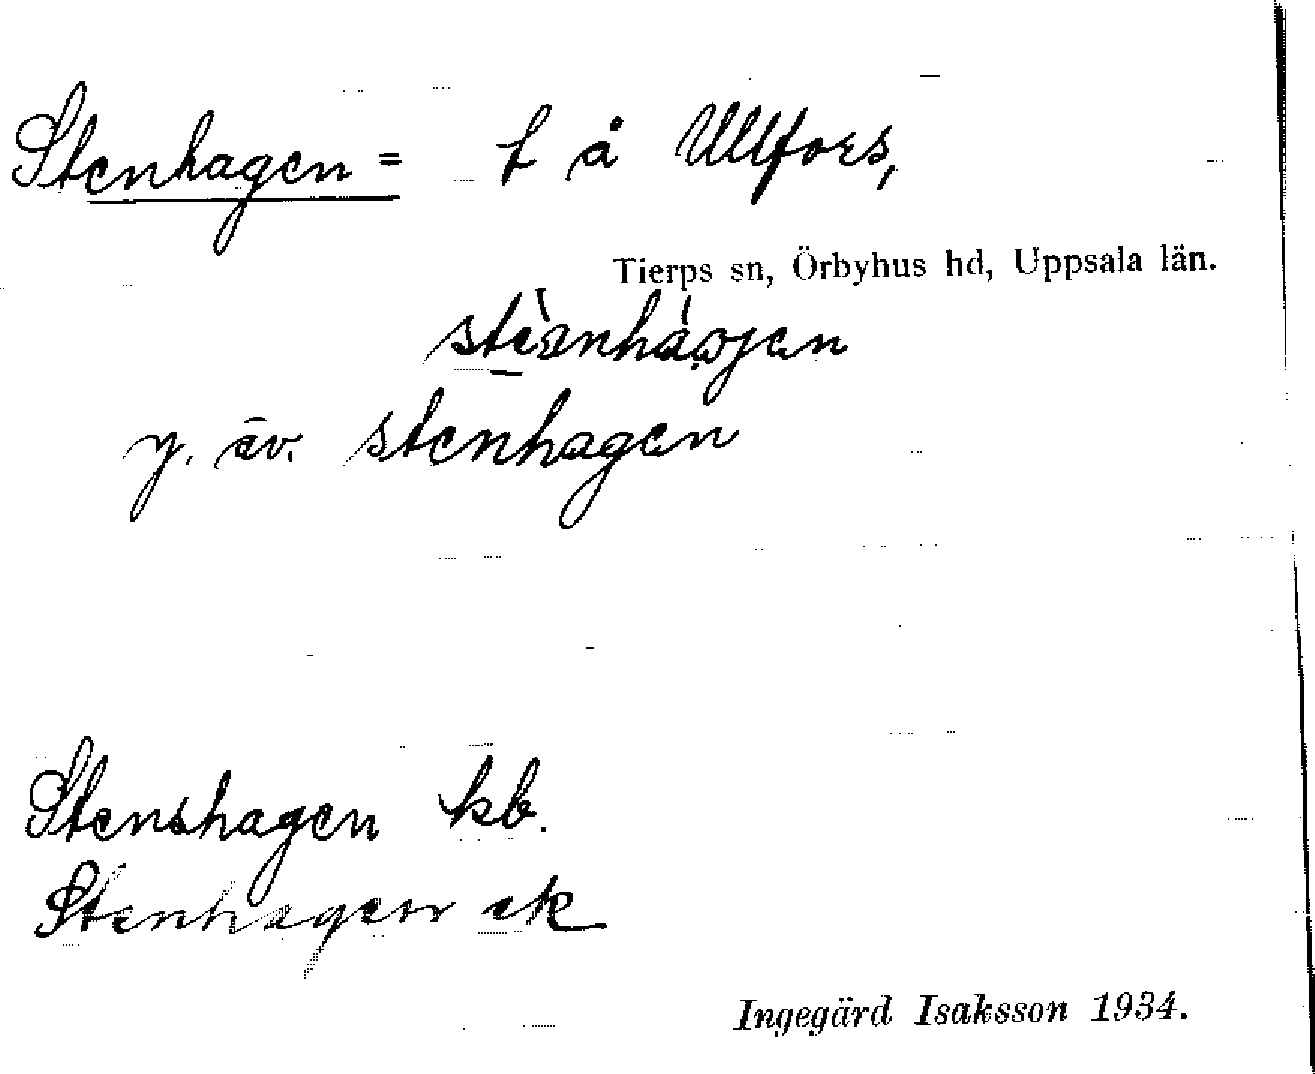 Stenhagen = t å Ullfors,
Tierps sn, Örbyhus hd, Uppsala län.
y. äv. stenhagen
Stenshagen kb.
Stenhagen ek
Ingegärd Isaksson 1934.